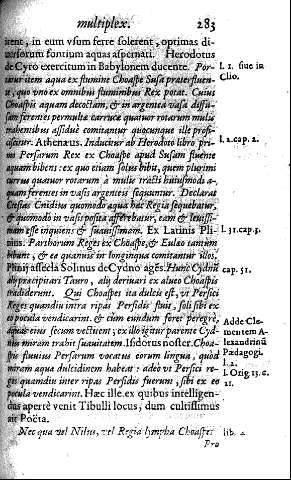 multiplex. 283
irent, in eum vsum ferre solerent, optimas di-
uersorum fontium aquas aspernati. Herodotus
de Cyro exercitum in Babylonem ducente. Por- l. 1. siue in
tatur item aqua ex flumine Choaspe Susa praterfluen- Clio.
te, quo vno ex omnibus fluminibus Rex potat. Cuius
Choaspis aquam decoctam, & in argentea vasa diffu-
sam ferentes permulta carruca quatuor rotarum mulis
trahentibus assiduè comitantur quocunque ille profi-
ciscatur. Athenæus. Inducitur ab Herodoto libro pri- l. 2. cap. 2.
mo Persarum Rex ex Choaspe apud Susam fluente
aquam bibens: ex quo etiam solus bibit, quem plurimi
currus quatuor rotarum à mulis tracti huiusmodi a-
quam ferentes in vasis argenteis sequuntur. Declarat
Ctesias Cnidius quomodo aqua hæc Regia sequebatur,
& quomodo in vasis posita afferebatur, eam & leuissi-
mam esse inquiens & suauissimam. Ex Latinis Pli- l. 31. cap. 3.
nius. Parthorum Reges ex Choaspe, & Eulæo tantum
bibunt, & ea quamuis in longinqua comitantur illos.
Plinij assecla Solinus de Cydno agẽs. Hunc Cydnũ cap. 51.
alij præcipitari Tauro, alij deriuari ex alueo Choaspis
tradiderunt. Qui Choaspes ita dulcis est, vt Persici
Reges quandiu intra ripas Persidis fuit, soli sibi ex
eo pocula vendicarint. & cum eundum foret peregrè,
aquas eius secum vectirent, ex illo igitur parente Cyd- Adde Cle-
nus miram trahit suauitatem. Isidorus noster. Choas- mentem A-
pis fluuius Persarum vocatus eorum lingua, quòd lexandrinũ
miram aqua dulcedinem habeat: adeò vt Persici re- Pædagogi.
ges quamdiu inter ripas Persidis fuerunt, sibi ex eo l. 2.
pocula vendicarint. Hæc ille. ex quibus intelligen- l. Orig 13. c.
dus apertè venit Tibulli locus, dum cultissimus 21.
ait Poëta.
Nec qua vel Nilus, vel Regia lympha Choaspes lib. 4.
Pro